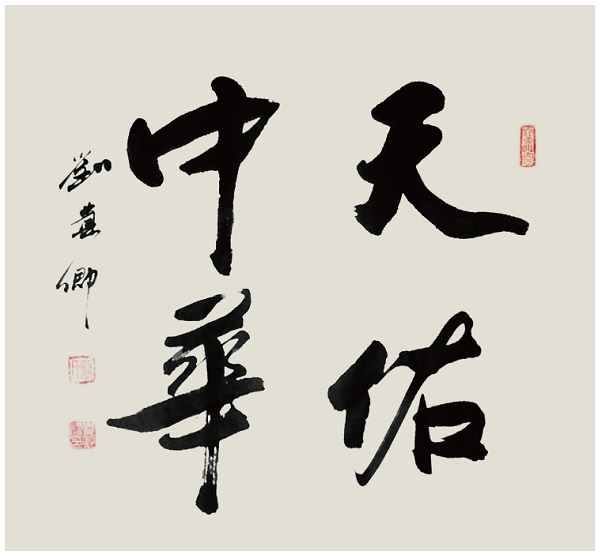 天佑
中華
劉 卿